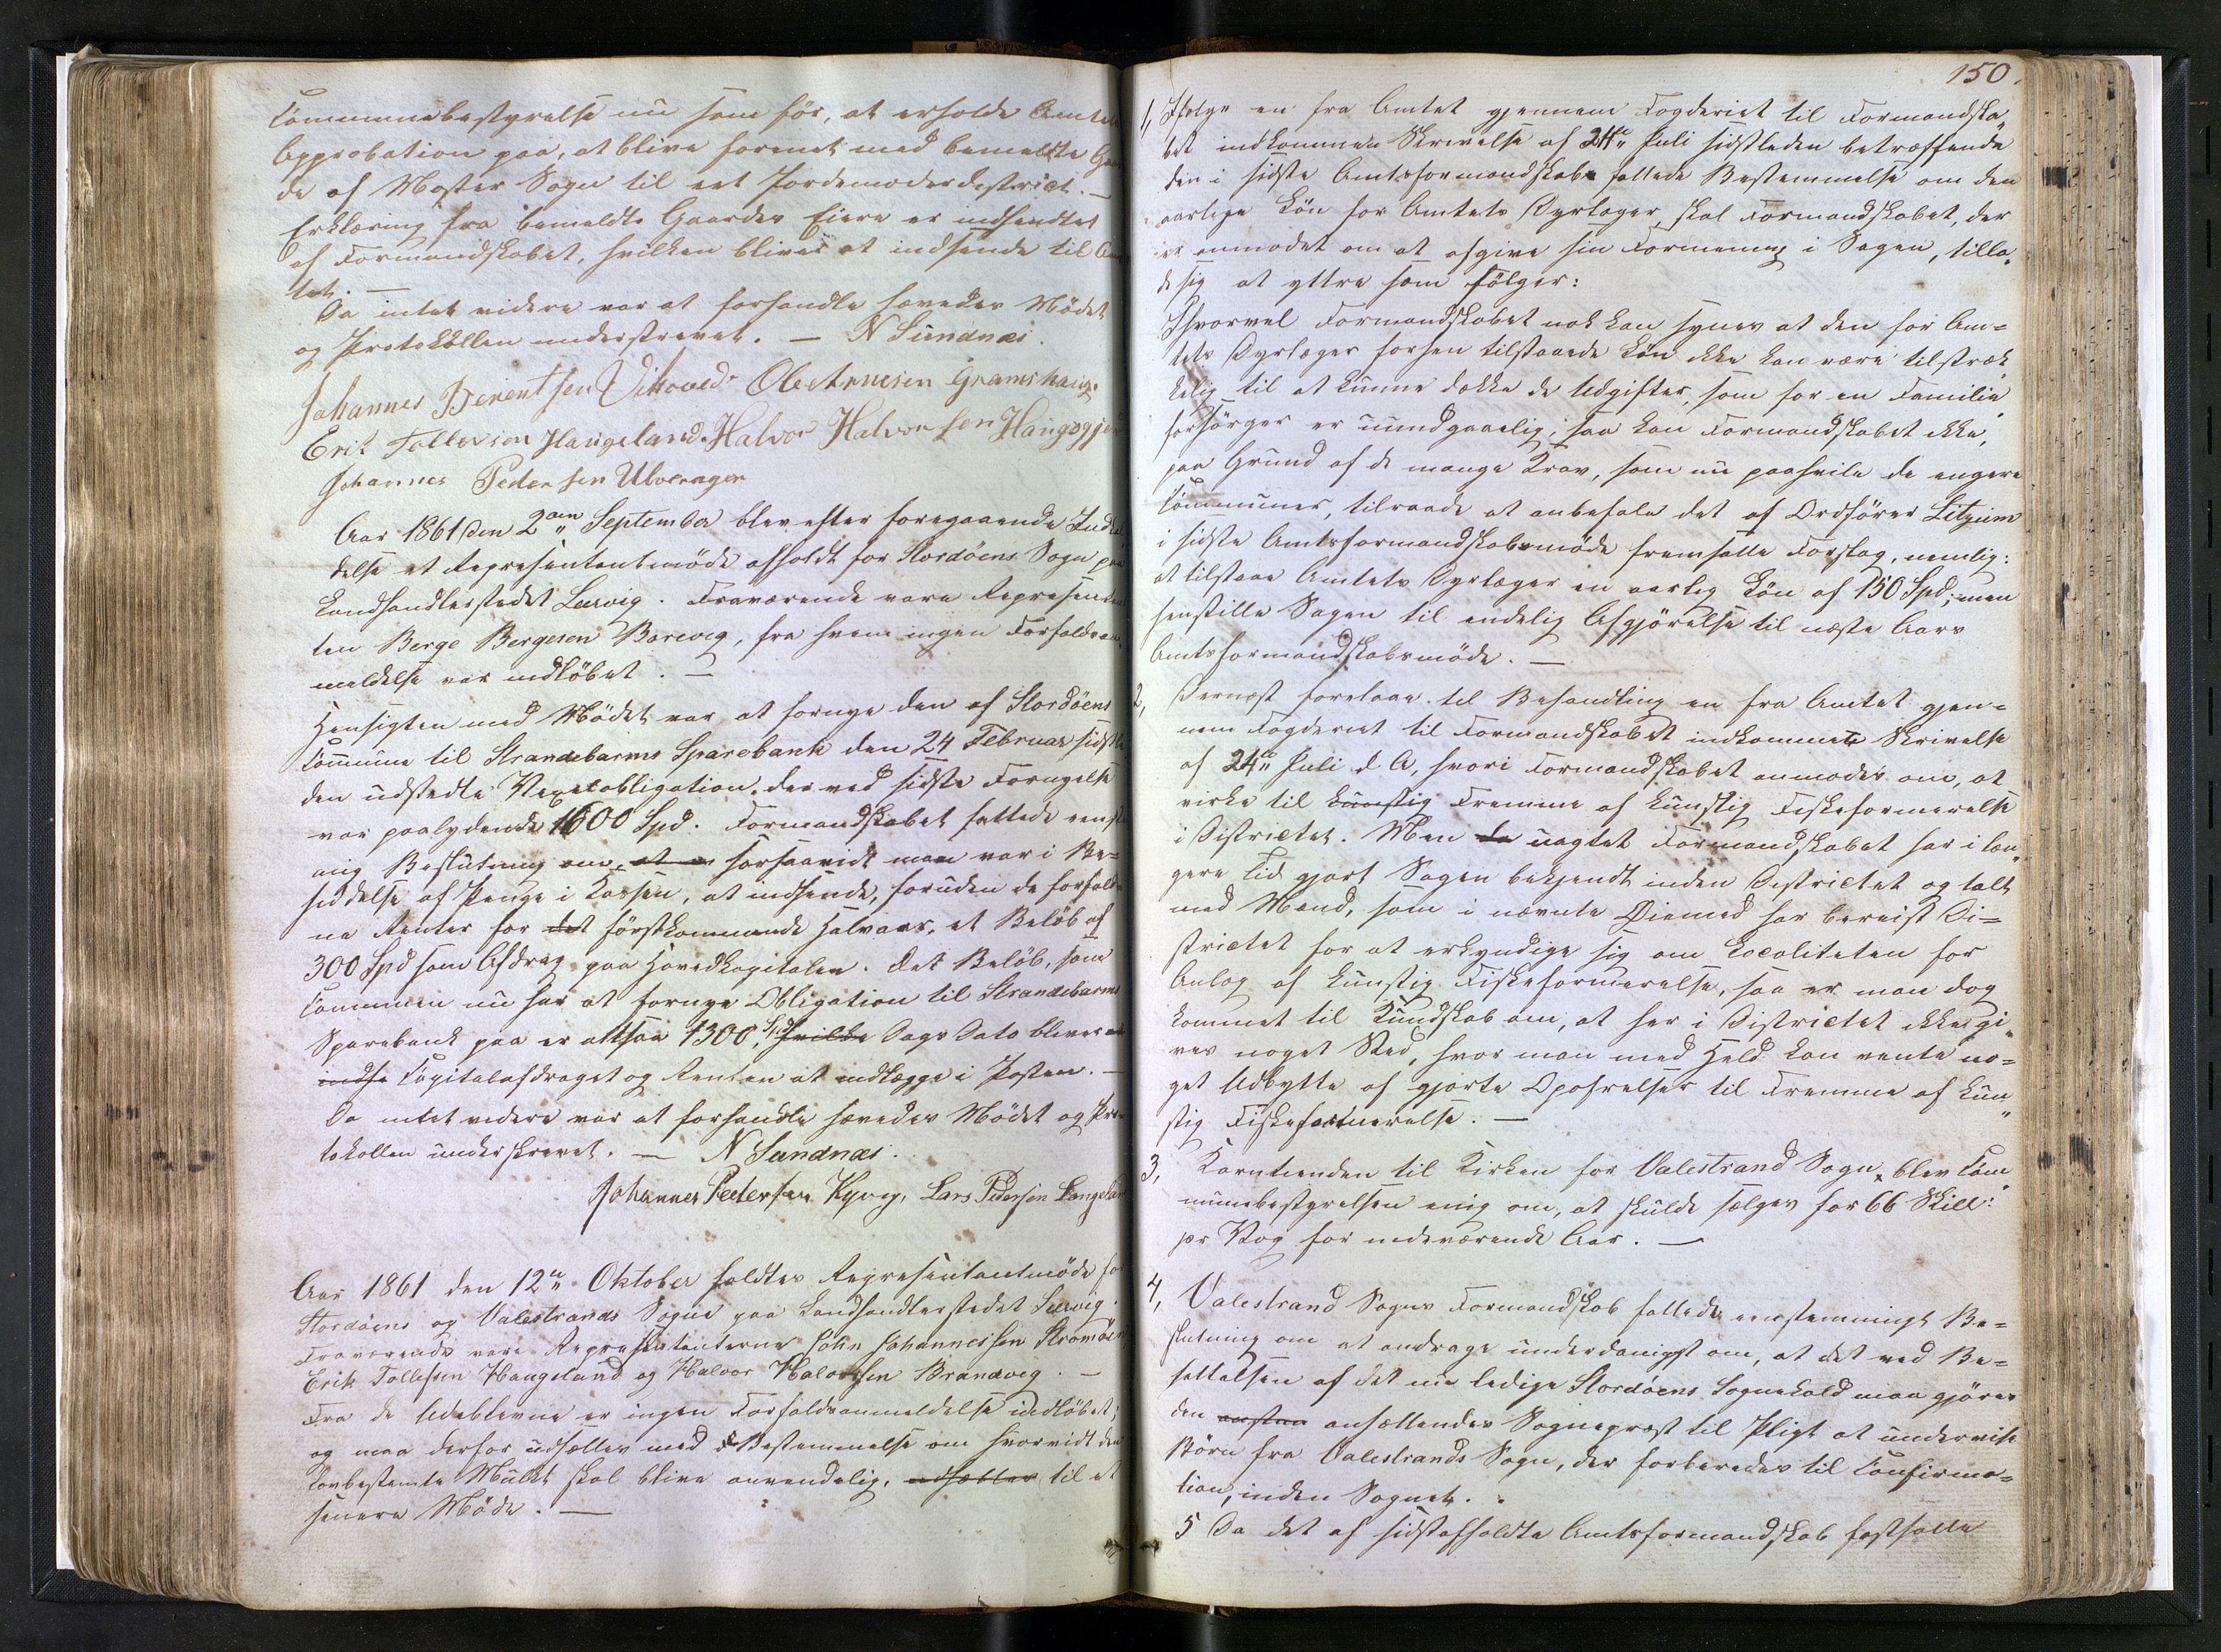 Communebestyrelse nu som för, at erholde Amtets
Approbation paa, at blive forenet med bemeldte Gaar
de af Moster Sogn til eet Jordemoderdistrict. —
Erklæring fra bemeldte Gaardes Eiere er indhentet
af Formandskabet, hvilken bliver at indsende til Am
tet. —
Da intet videre var at forhandle hævedes Mödet
og Protokollen underskrevet. — N Sundnæs.
Johannes Berentsen Vikoved Ole Arnesen Gramshaug.
Erik Tollevsen Haugeland. Halvor Halvorsen Haugsgjer
Johannes Pedersen Ulveragen
Aar 1861 den 2den September blev efter foregaaende Indka
delse et Repræsentantmöde afholdt for Stordöens Sogn paa
Landhandlerstedet Leervig. Fraværende vare Repræsentan
ten Berge Bergesen Borevig, fra hvem ingen Forfaldsan
meldelse var indlöbet. —
Hensigten med Mödet var at fornye den af Stordöens
Commune til Strandebarms Sparebank den 24 Februar sidstle
den udstedte Vexelobligation, der ved sidste Fornyelse
var paalydende 1600 Spd. Formandskabet fattede eenst
mig Beslutning om, at forsaavidt man var i Be=
siddelse af Penge i Kassen, at indsende, foruden de forfald
ne Renter for det förstkommende Halvaar, et Belöb af
300 Spd som Afdrag paa Hovedkapitalen. Det Belöb, som
Communen nu har at fornye Obligation til Strandebarms
Sparebank paa er altsaa 1300 Spd hvilke Dags Dato bliver
indse Capitalafdraget og Renten at indlægge i Posten. —
Da intet videre var at forhandle hævedes Mödet og Pro
tokollen underskrevet. — N Sundnæs.
Johannes Pedersen Kyvig, Lars Pedersen Langeland
Aar 1861 den 12te Oktober holdtes Repræsentantmöde for
Stordöens og Valestrands Sogne paa Landhandlerstedet Leervig.
Fraværende vare Repræsentanterne John Johannessen Strömöen
Erik Tollefsen Haugeland og Halvor Halvorsen Brandvig. —
Fra de Udeblevne er ingen Forfaldsanmeldelse indlöbet;
og maa derfor udsættes med Bestemmelse om hvorvidt den
lovbestemte Mulkt skal blive anvendelig, udsættes til et
senere Möde. —
150.
1, Ifölge en fra Amtet gjennem Fogderiet til Formandska
bet indkommen Skrivelse af 24de Juli sidstleden betræffende
den i sidste Amtsformandskab fattede Bestemmelse om den
aarlige Lön for Amtets Dyrlæger, skal Formandskabet, der
er anmodet om at afgive sin Formening i Sagen, tilla
de sig at yttre som fölger:
Ihvorvel Formandskabet nok kan synes at den for Am=
tets Dyrlæger forhen tilstaaede Lön ikke kan være tilstræk
kelig til at kunne dække de Udgifter, som for en Familie
forsörger er uundgaaelig; saa kan Formandskabet ikke,
paa Grund af de mange Krav, som nu paahvile de engere
Communer, tilraade at anbefale det af Ordförer Sitzium
i sidste Amtsformandskabsmöde fremsatte Forslag, nemlig:
at tilstaae Amtets Dyrlæger en aarlig Lön af 150 Spd; men
henstille Sagen til endelig Afgjörelse til næste Aars
Amtsformandskabsmöde. —
2, Dernæst forelaae til Behandling en fra Amtet gjen=
nem Fogderiet til Formandskabet indkommet Skrivelse
af 24de Juli d. A, hvori Formandskabet anmodes om, at
virke til kunstig Fremme af kunstig Fiskeformerelse
i Districtet. Men da uagtet Formandskabet har i læn
gere Tid gjort Sagen bekjendt inden Districtet og talt
med Mænd, som i nævnte Öiemed har bereist Di=
strictet for at erkyndige sig om Localiteten for
Anlæg af kunstig Fiskeformerelse, saa er man dog
kommet til Kundskab om, at her i Districtet ikke gi
ves noget Sted, hvor man med Held kan vente no=
get Udbytte af gjorte Opofrelser til Fremme af kun
stig Fiskeformerelse. —
3, Korntienden til Kirken for Valestrand Sogn, blev Com
munebestyrelsen enig om, at skulde sælges for 66 Skill:
pr Vog for indeværende Aar. —
4, Valestrand Sogns Formandskab fattede eenstemmigt Be=
slutning om at andrage underdanigst om, at det ved Be=
sættelsen af det nu ledige Stordöens Sognekald maa gjöres
den ansættendes Sognepræst til Pligt at undervise
Börn fra Valestrands Sogn, der forberedes til Confirma=
tion, inden Sognet.
5 Da det af sidstafholdte Amtsformandskab fastsatte